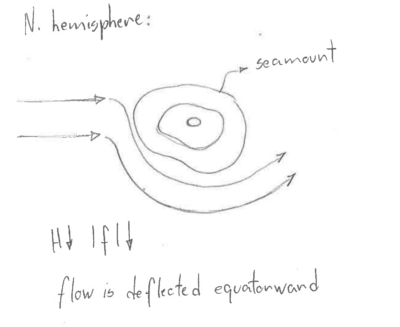 N. hemisphere:
seamount
H↓ |f|↓
flow is deflected equatorward